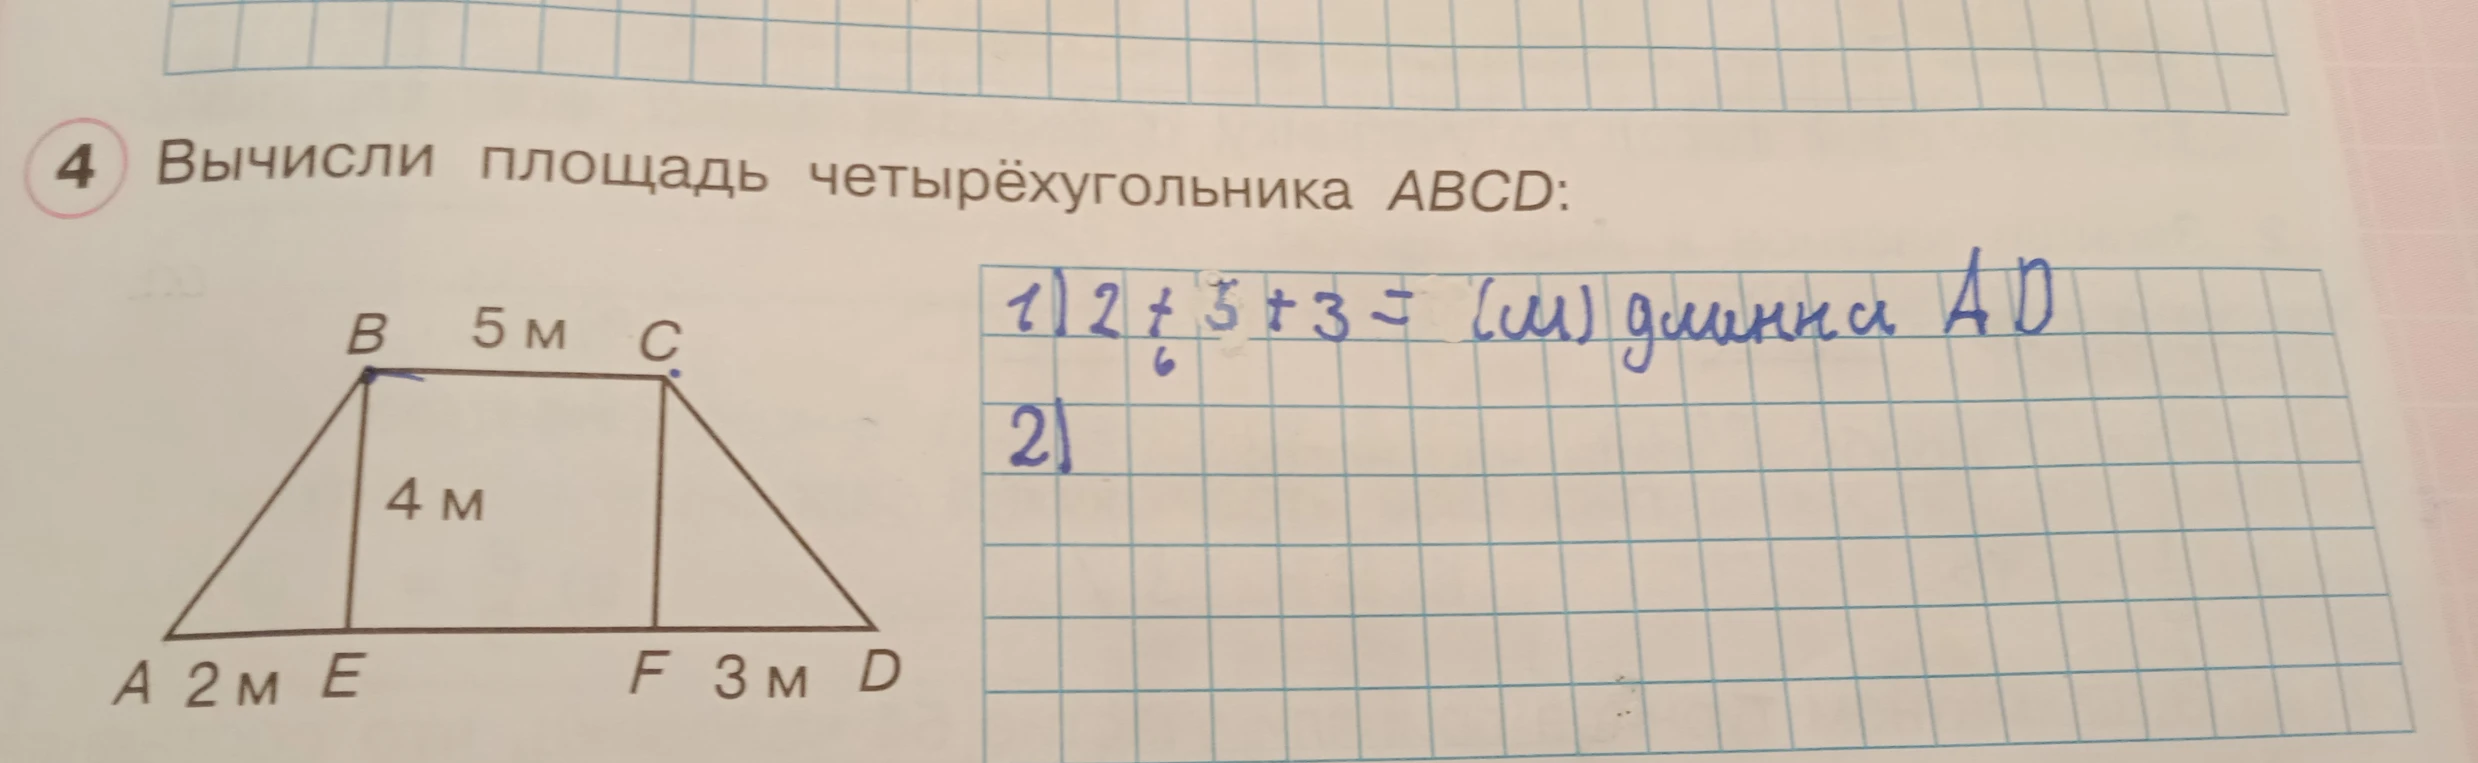 4 Вычисли площадь четырёхугольника ABCD:
B 5 м C
4 м
A 2 м E F 3 м D
1) 2 + 5 + 3 = (м) длинна AD
6
2)